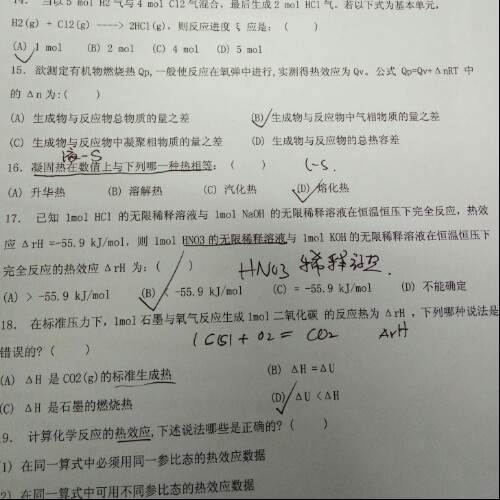 14. 当以 5 mol H2 气与 4 mol Cl2 气混合，最后生成 2 mol HCl 气。若以下式为基本单元，
H2(g) + Cl2(g) ----> 2HCl(g)，则反应进度 ξ 应是：（ ）
(A) 1 mol (B) 2 mol (C) 4 mol (D) 5 mol
15. 欲测定有机物燃烧热 Qp,一般使反应在氧弹中进行,实测得热效应为 Qv。公式 Qp=Qv+ΔnRT 中
的 Δn 为:（ ）
(A) 生成物与反应物总物质的量之差 (B) 生成物与反应物中气相物质的量之差
(C) 生成物与反应物中凝聚相物质的量之差 (D) 生成物与反应物的总热容差
液-S
16. 凝固热在数值上与下列哪一种热相等：（ ） l-S.
(A) 升华热 (B) 溶解热 (C) 汽化热 (D) 熔化热
17. 已知 1mol HCl 的无限稀释溶液与 1mol NaOH 的无限稀释溶液在恒温恒压下完全反应，热效
应 ΔrH =-55.9 kJ/mol，则 1mol HNO3 的无限稀释溶液与 1mol KOH的无限稀释溶液在恒温恒压下
完全反应的热效应 ΔrH 为：（ ）
HNO3 稀释过.
(A) > -55.9 kJ/mol (B) < -55.9 kJ/mol (C) = -55.9 kJ/mol (D) 不能确定
18. 在标准压力下，1mol 石墨与氧气反应生成 1mol 二氧化碳 的反应热为 ΔrH ，下列哪种说法是
错误的？（ ） 1C(S) + O2 = CO2 ΔrH
(A) ΔH 是 CO2(g)的标准生成热 (B) ΔH =ΔU
(C) ΔH 是石墨的燃烧热 (D) ΔU <ΔH
19. 计算化学反应的热效应,下述说法哪些是正确的?（ ）
1) 在同一算式中必须用同一参比态的热效应数据
2) 在同一算式中可用不同参比态的热效应数据